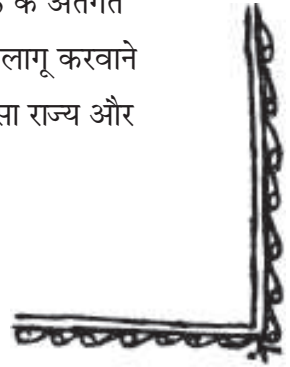 के अंतर्गत
लागू करवाने
सा राज्य और